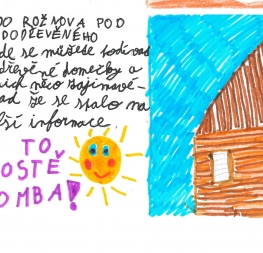 DO ROŽNOVA POD
DODŘEVĚNÉHO
de se můžeše podívat
dřevěné domečky a
nich něco zajímavé-
ad že se stalo na
lší informace
TO
OSTĚ
OMBA!